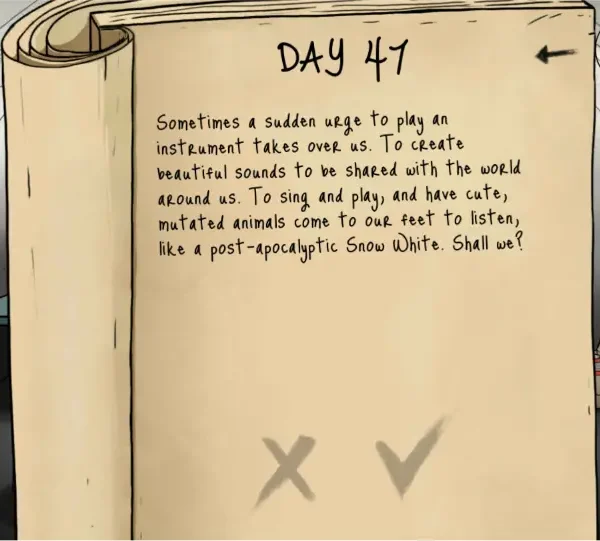 DAY 47
Sometimes a sudden urge to play an
instrument takes over us. To create
beautiful sounds to be shared with the world
around us. To sing and play, and have cute,
mutated animals come to our feet to listen,
like a post-apocalyptic Snow White. Shall we?